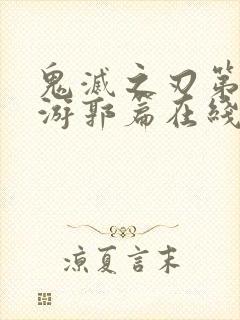 鬼滅之刃第
游郭篇在綫
涼夏言末